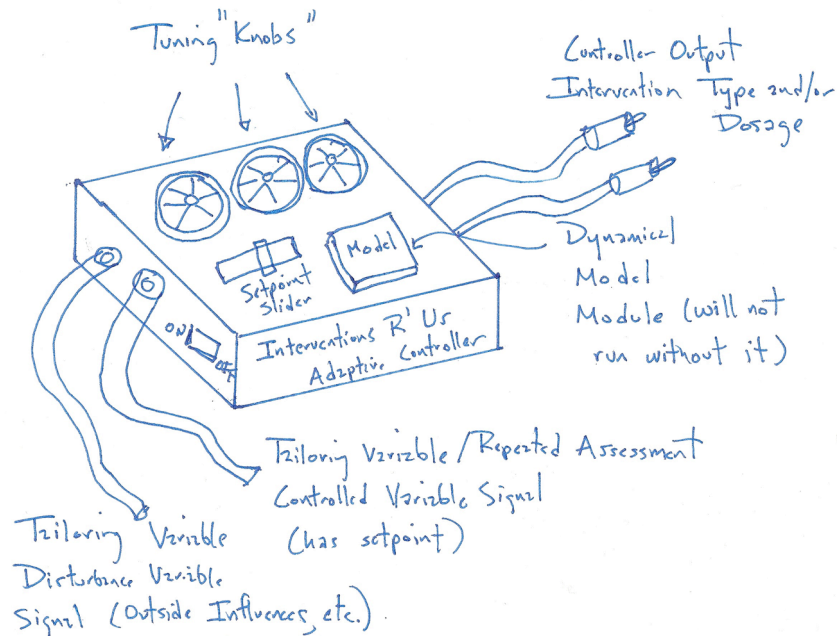 Tuning "Knobs"
Controller Output
Intervention Type and/or
Dosage
Model
Setpoint
Slider
Dynamical
Model
Module (will not
run without it)
ON
OFF
Interventions R' Us
Adaptive Controller
Tailoring Variable / Repeated Assessment
Controlled Variable Signal
(has setpoint)
Tailoring Variable
Disturbance Variable
Signal (Outside Influences, etc.)